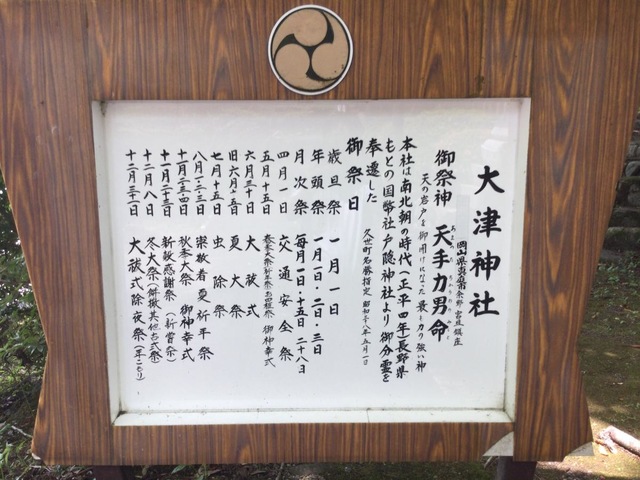 大津神社
岡山県真庭市余野 宮座鎮座
御祭神 天手力男命
天の岩戸を御開けになった 最も力の強い神
本社は南北朝の時代(正平四年)長野県
もとの国幣社戸隠神社より御分霊を
奉遷した
久世町名勝指定 昭和
年五月一日
御祭日
歳旦祭 一月一日
年頭祭 一月一日・二日・三日
月次祭 毎月一日・十五日 二十八日
四月一日 交通安全祭
五月十五日
御神幸式
六月三十日 大祓式
旧六月十五日 夏大祭
七月十五日 虫除祭
八月一・二・三日 崇敬者夏祈平祭
秋季大祭 御神幸式
十一月二十三日 新穀感謝祭(新嘗祭)
十二月八日 冬大祭(餅搬其他古式祭)
十二月三十一日 大祓式除夜祭(年こもり)